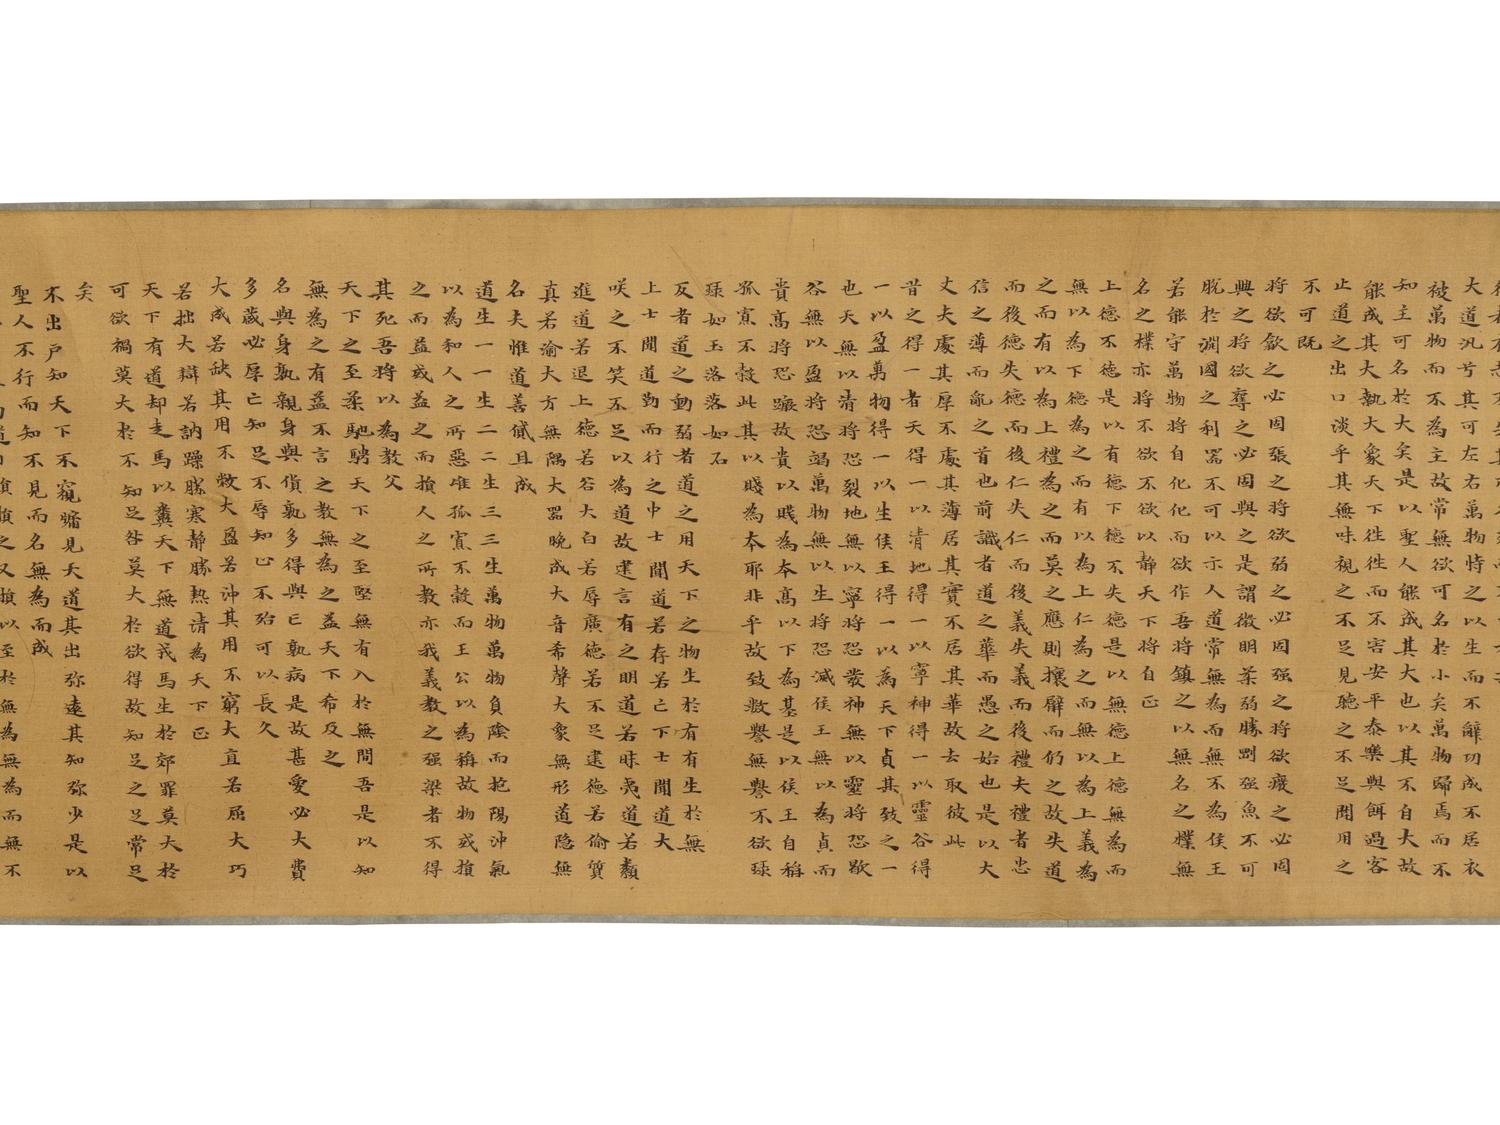 大道汎兮其可左右萬物恃之以生而不辭功成不居衣
被萬物而不為主故常無欲可名於小矣萬物歸焉而不
知主可名於大矣是以聖人能成其大也以其不自大故
能成其大執大象天下往往而不害安平泰樂與餌過客
止道之出口淡乎其無味視之不足見聽之不足聞用之
不可既
將欲歙之必固張之將欲弱之必固强之將欲廢之必固
興之將欲奪之必固與之是謂微明柔弱勝剛强魚不可
脫於淵國之利器不可以示人道常無為而無不為侯王
若能守萬物將自化化而欲作吾將鎮之以無名之樸無
名之樸亦將不欲不欲以靜天下將自正
上德不德是以有德下德不失德是以無德上德無為而
無以為下德為之而有以為上仁為之而無以為上義為
之而有以為上禮為之而莫之應則攘臂而仍之故失道
而後德失德而後仁失仁而後義失義而後禮夫禮者忠
信之薄而亂之首也前識者道之華而愚之始也是以大
丈夫處其厚不處其薄居其實不居其華故去取彼此
昔之得一者天得一以清地得一以寧神得一以靈谷得
一以盈萬物得一以生侯王得一以為天下貞其致之一
也天無以清將恐裂地無以寧將恐發神無以靈將恐歇
谷無以盈將恐竭萬物無以生將恐滅侯王無以為貞而
貴高將恐蹶故貴以賤為本高以下為基是以侯王自稱
孤寡不穀此其以賤為本耶非乎故致數譽無譽不欲琭
琭如玉落落如石
反者道之動弱者道之用天下之物生於有有生於無
上士聞道勤而行之中士聞道若存若亡下士聞道大
咲之不笑不足以為道故建言有之明道若昧夷道若纇
進道若退上德若谷大白若辱廣德若不足建德若偷質
真若渝大方無隅大器晚成大音希聲大象無形道隱無
名夫惟道善貸且成
道生一一生二二生三三生萬物萬物負陰而抱陽沖氣
以為和人之所惡唯孤寡不穀而王公以為稱故物或損
之而益或益之而損人之所教亦我義教之强梁者不得
其死吾將以為教父
天下之至柔馳騁天下之至堅無有入於無間吾是以知
無為之有益不言之教無為之益天下希及之
名與身孰親身與貨孰多得與亡孰病是故甚愛必大費
多藏必厚亡知足不辱知止不殆可以長久
大成若缺其用不敝大盈若沖其用不窮大直若屈大巧
若拙大辯若訥躁勝寒靜勝熱清為天下正
天下有道却走馬以糞天下無道戎馬生於郊罪莫大於
可欲禍莫大於不知足咎莫大於欲得故知足之足常足
矣
不出戶知天下不窺牖見天道其出弥遠其知弥少是以
聖人不行而知不見而名無為而成
損損之又損以至於無為無為而無不